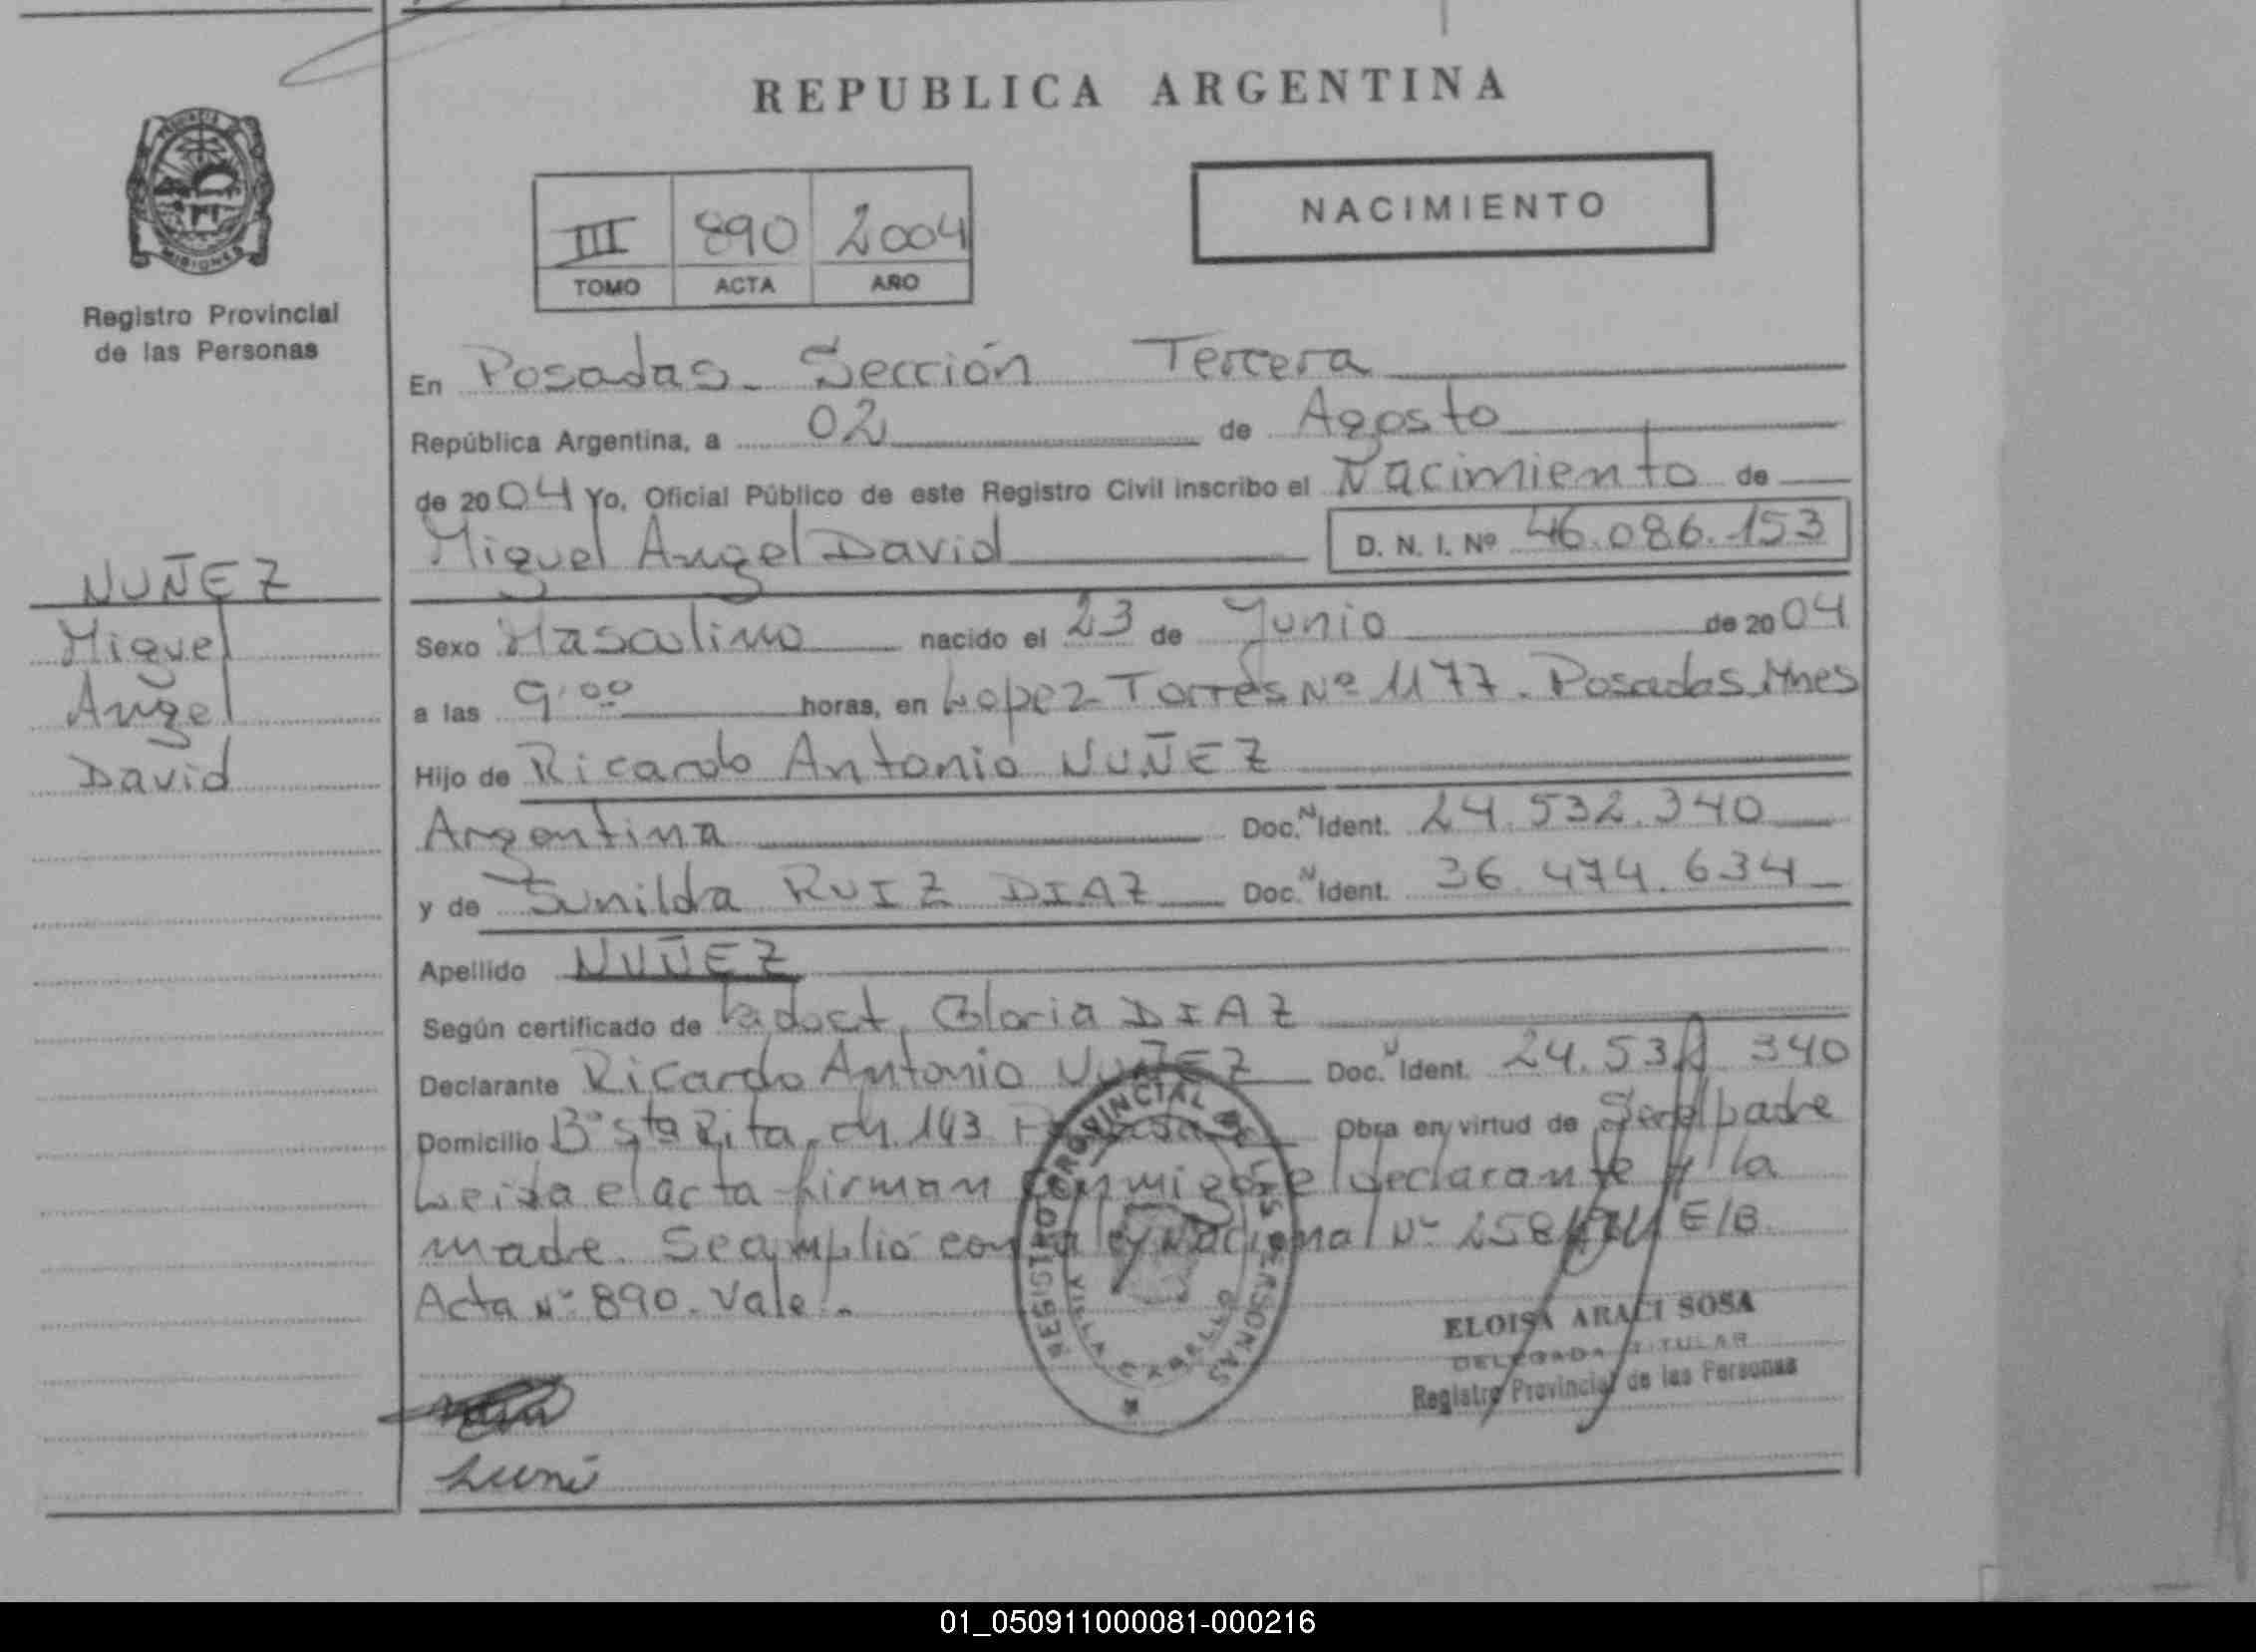 REPUBLICA ARGENTINA
PROVINCIA DE
MISIONES
Registro Provincial
de las Personas
III 890 2004
TOMO ACTA AÑO
NACIMIENTO
En Posadas. Sección Tercera
República Argentina, a 02 de Agosto
de 2004 Yo, Oficial Público de este Registro Civil inscribo el Nacimiento de
Miguel Angel David D. N. I. Nº 46.086.153
NUÑEZ
Miguel
Angel
David
Sexo Masculino nacido el 23 de Junio de 2004
a las 9:00 horas, en Lopez Torres Nº 1177. Posadas Mnes
Hijo de Ricardo Antonio NUÑEZ
Argentina Doc. N Ident. 24.532.340
y de Sunilda RUIZ DIAZ Doc. N Ident. 36.474.634
Apellido NUÑEZ
Según certificado de Gloria DIAZ
Declarante Ricardo Antonio NUÑEZ Doc. N Ident. 24.532.340
Domicilio Bº Sta Rita. ch. 143 Posadas Obra en virtud de Ser el padre
Leida el acta firman conmigo el declarante y la
madre. Se amplió con la ley Nacional Nº E/B
Acta Nº 890. Vale.
REGISTRO PROVINCIAL DE LAS PERSONAS
VILLA CABELLO
ELOISA ARACI SOSA
DELEGADA TITULAR
Registro Provincial de las Personas
01_050911000081-000216